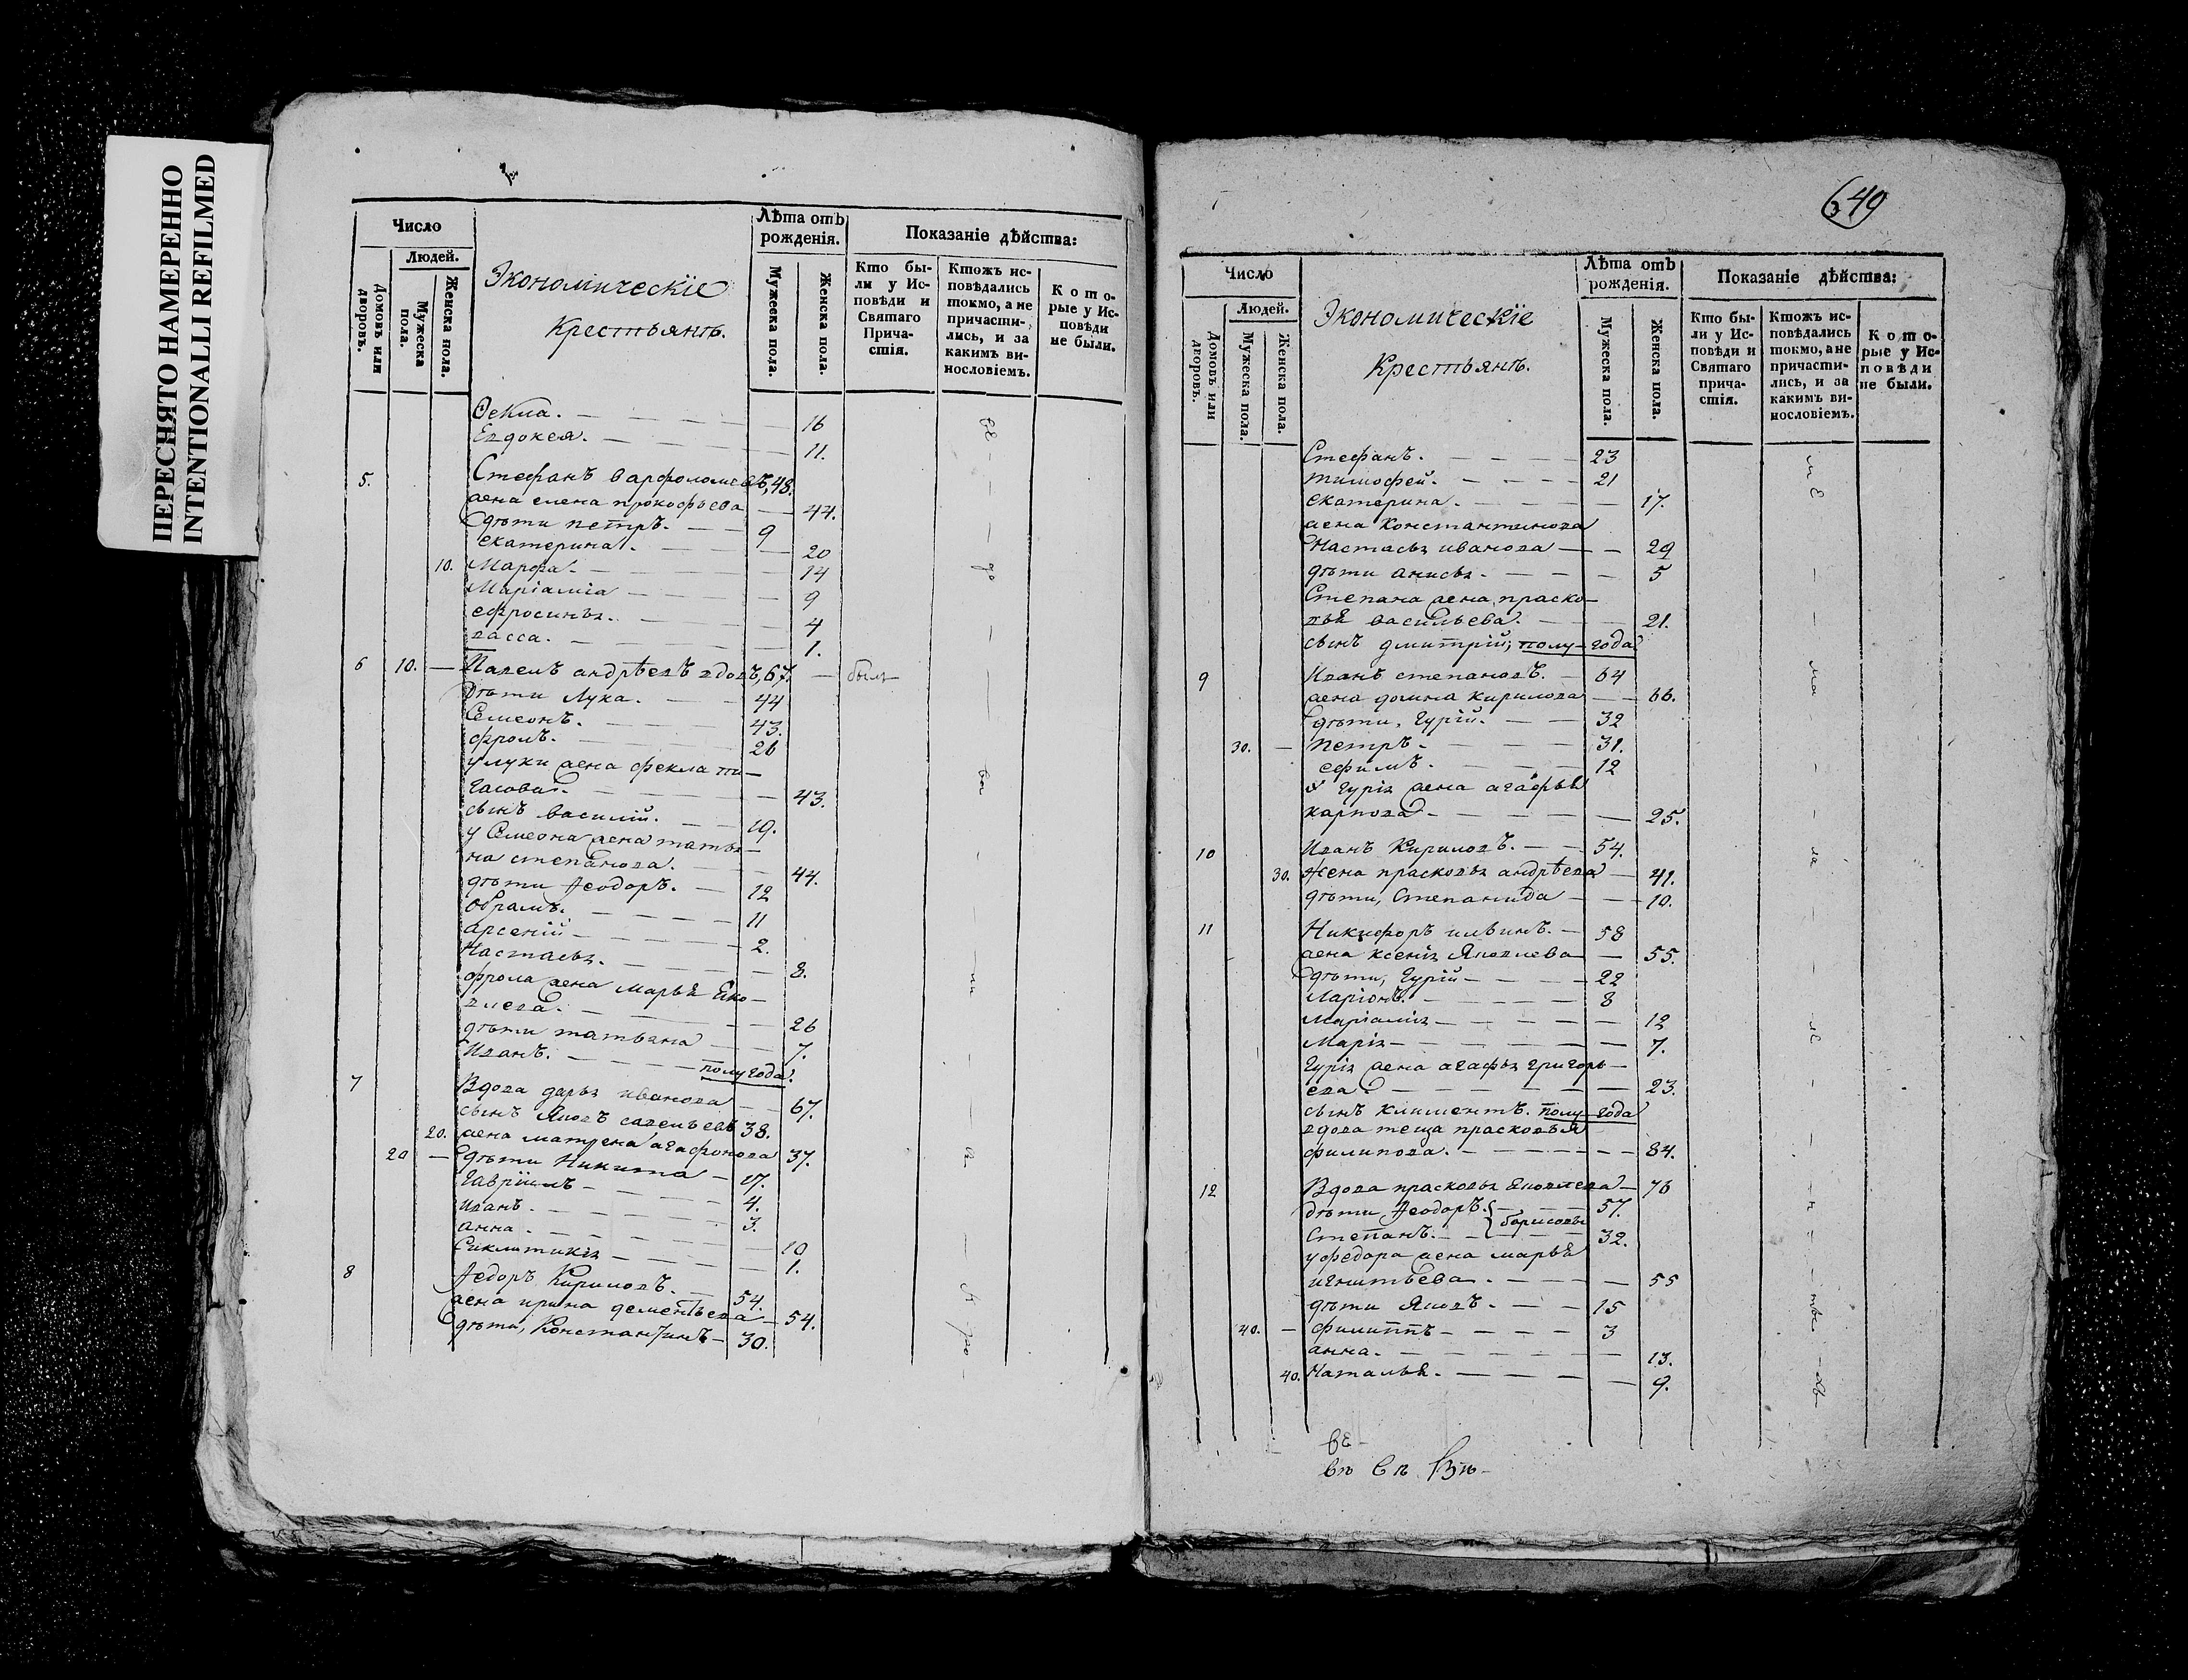 ПЕРЕСНЯТО НАМЕРЕННО
INTENTIONALLI REFILMED
Число
Людей.
Домовъ или дворовъ.
Мужеска пола.
Женска пола.
Экономическіе
Крестьянъ.
Лѣта отъ рожденія.
Мужеска пола.
Женска пола.
Показаніе дѣйства:
Кто бы-
ли у Ис-
повѣди и
Святаго
Прича-
стія.
Ктожъ ис-
повѣдались
токмо, а не
причасти-
лись, и за
какимъ ви-
нословіемъ.
Кото-
рые у Ис-
повѣди
не были.
Ѳекла. 16
Евдокея. 11.
5. Стефанъ варфоломеевъ, 48.
жена елена прокофьева 44.
дѣти петръ. 9
екатерина. 20
10. Марфа. 14
Маріамia 9
ефросинья. 4
васса. 1.
6 10. Павелъ андрѣевъ вдовъ, 67. былъ
Дѣти Лука. 44
Семеонъ. 43.
фролъ. 26
у луки жена фекла ти-
хасова. 43.
сынъ василій. 19.
у Семеона жена татья-
на степанова. 44.
дѣти Ѳеодоръ. 12
обрамъ. 11
арсеній 2.
Настасья. 8.
фрола жена Марья Яко-
влева. 26
дѣти татьяна 7.
Иванъ. полугода.
7 Вдова дарья иванова 67.
сынъ Яковъ савельевъ 38.
20. жена матрена агафонова 37.
20 дѣти Никита 17.
Гавріилъ 4.
иванъ. 3.
анна. 10
Сиклитикія 1.
8 Ѳедоръ Кириловъ. 54.
жена ирина дементьева 54.
дѣти, Константинъ 30.
649
Число
Людей.
Домовъ или дворовъ.
Мужеска пола.
Женска пола.
Экономическіе
Крестьянъ.
Лѣта отъ рожденія.
Мужеска пола.
Женска пола.
Показаніе дѣйства:
Кто бы-
ли у Ис-
повѣди и
Святаго
прича-
стія.
Ктожъ ис-
повѣдались
токмо, а не
причасти-
лись, и за
какимъ ви-
нословіемъ.
Кото-
рые у Ис-
повѣди
не были.
Стефанъ. 23
тимофей. 21
екатерина. 17.
жена Константинова
Настасья иванова 29
дѣти анисья. 5
Степана жена, праско-
вья васильева. 21.
сынъ дмитрій, полу-года
9 Иванъ степановъ. 64
жена домна кирилова 66.
дѣти, Гурій. 32
30. петръ. 31.
ефимъ. 12
У Гурія жена агафья
карпова 25.
10 Иванъ Кириловъ. 54.
30. Жена прасковья андрѣева 41.
дѣти, Степанида 10.
11 Никифоръ ильинъ. 58
жена ксенія Яковлева 55.
дѣти, Гурій 22
Ларіонъ. 8
Маріамія 12
Марія 7.
Гурія жена агафья григорь-
ева. 23.
сынъ климентъ. полу-года
вдова теща прасковья
филипова. 84.
12 Вдова прасковья Яковлева 76
дѣти, Ѳеодоръ. 57.
Степанъ. борисовы 32.
у федора жена марья
игнатьева. 55
дѣти Яковъ. 15
40. филиппъ 3
анна. 13.
40. Наталья. 9.